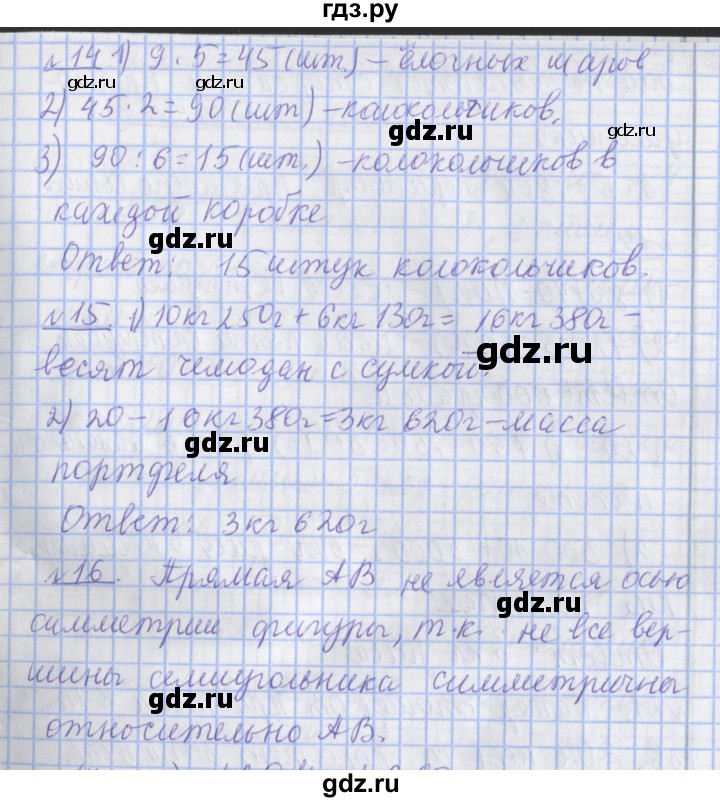 гдз.ру
№14 1) 9·5=45(шт) – ёлочных шаров
gdz.ru gdz.ru
2) 45·2=90(шт) – колокольчиков.
gdz.ru gdz.ru
3) 90:6=15(шт.) – колокольчиков в
каждой коробке
gdz.ru
Ответ: 15 штук колокольчиков.
№15. 1) 10кг 250г + 6кг 130г = 16кг 380г –
gdz.ru
весят чемодан с сумкой.
2) 20 – 16кг 380г = 3кг 620г – масса
gdz.ru
портфеля
Ответ: 3кг 620г
№16. Прямая АВ не является осью
gdz.ru
симметрии фигуры, т.к. не все вер-
шины семиугольника симметричны
gdz.ru
относительно АВ.
gdz.ru gdz.ru